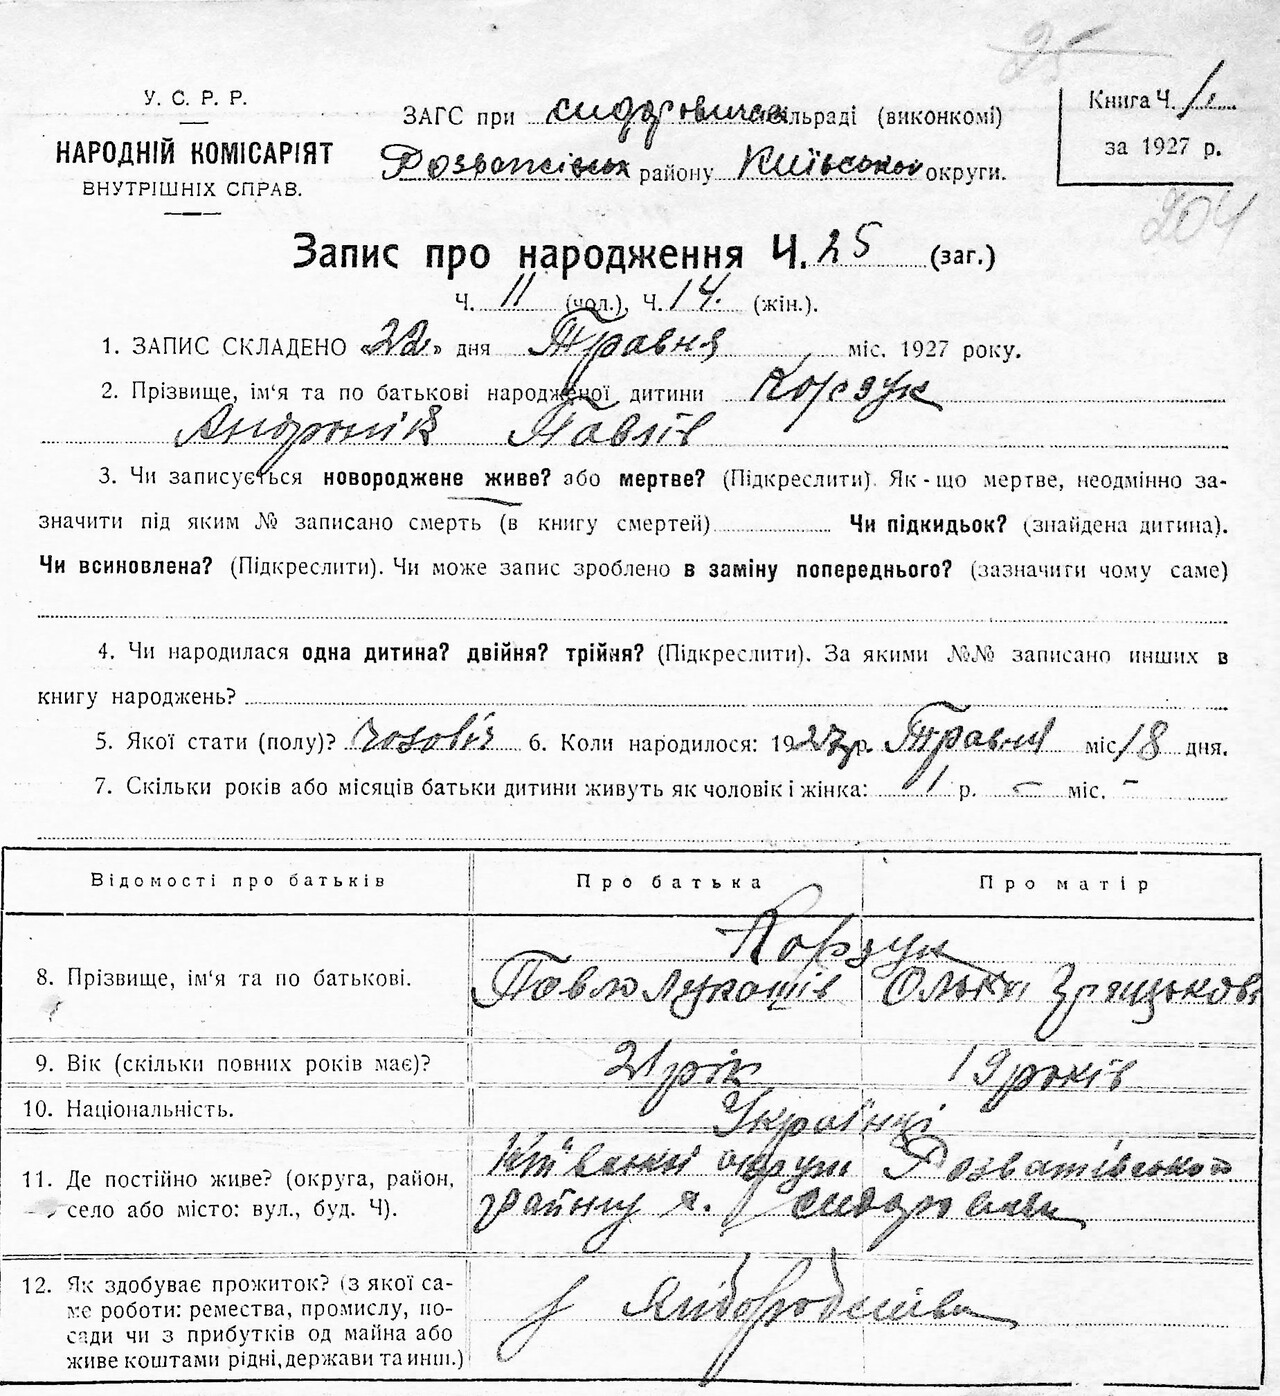 25
У. С. Р. Р.
НАРОДНІЙ КОМІСАРІЯТ
ВНУТРІШНІХ СПРАВ.
ЗАГС при Сидоровичській сільраді (виконкомі)
району Київської округи.
Книга Ч. 1
за 1927 р.
204
Запис про народження Ч. 25 (заг.)
Ч. 11 (чол.), Ч. 14. (жін.).
1. ЗАПИС СКЛАДЕНО «22» дня Травня міс. 1927 року.
2. Прізвище, ім'я та по батькові народженої дитини Корзук
Андронік Павлів
3. Чи записується новороджене живе? або мертве? (Підкреслити). Як-що мертве, неодмінно за-
значити під яким № записано смерть (в книгу смертей) Чи підкидьок? (знайдена дитина).
Чи всиновлена? (Підкреслити). Чи може запис зроблено в заміну попереднього? (зазначити чому саме)
4. Чи народилася одна дитина? двійня? трійня? (Підкреслити). За якими №№ записано инших в
книгу народжень?
5. Якої стати (полу)? чоловіч 6. Коли народилося: 1927 р. Травня міс 18 дня.
7. Скільки років або місяців батьки дитини живуть як чоловік і жінка: 1 р. – міс. –
Відомості про батьків Про батька Про матір
Корзук
8. Прізвище, ім'я та по батькові. Павло Лукашів Олька
9. Вік (скільки повних років має)? 21 рік 19 років
10. Національність. Українці
11. Де постійно живе? (округа, район,
село або місто: вул., буд. Ч).
Київської округи
району с.
12. Як здобуває прожиток? (з якої са-
ме роботи: ремества, промислу, по-
сади чи з прибутків од майна або
живе коштами рідні, держави та инш.)